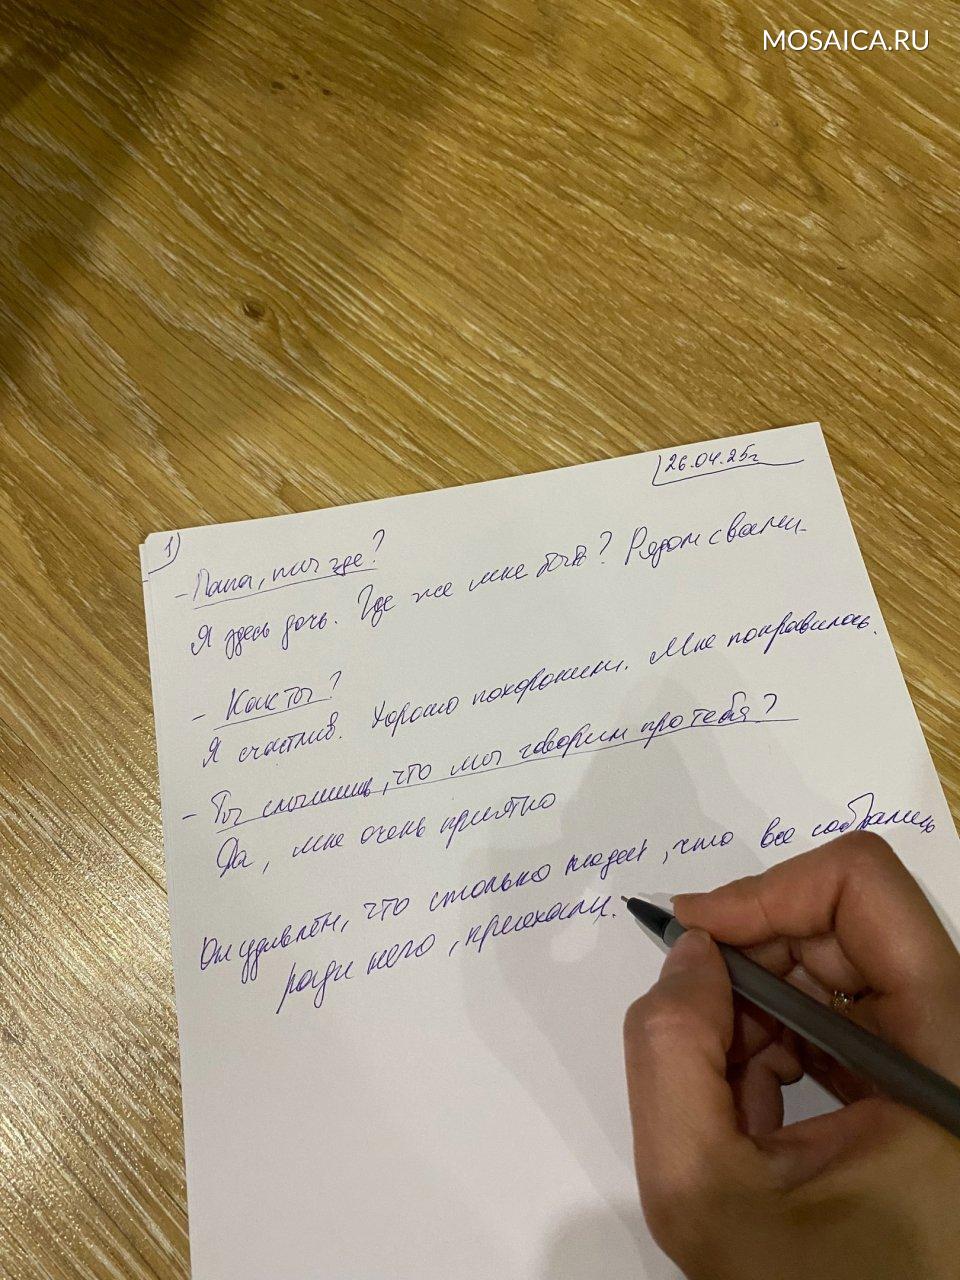 MOSAICA.RU
26.04.25г
1)
- Папа, ты где?
Я здесь дочь. Где же мне быть? Рядом с вами.
- Как ты?
Я счастлив. Хорошо похоронили. Мне понравилось.
- Ты слышишь, что мы говорим про тебя?
Да, мне очень приятно
Он удивлён, что столько людей, что все собрались
ради него, приехали.